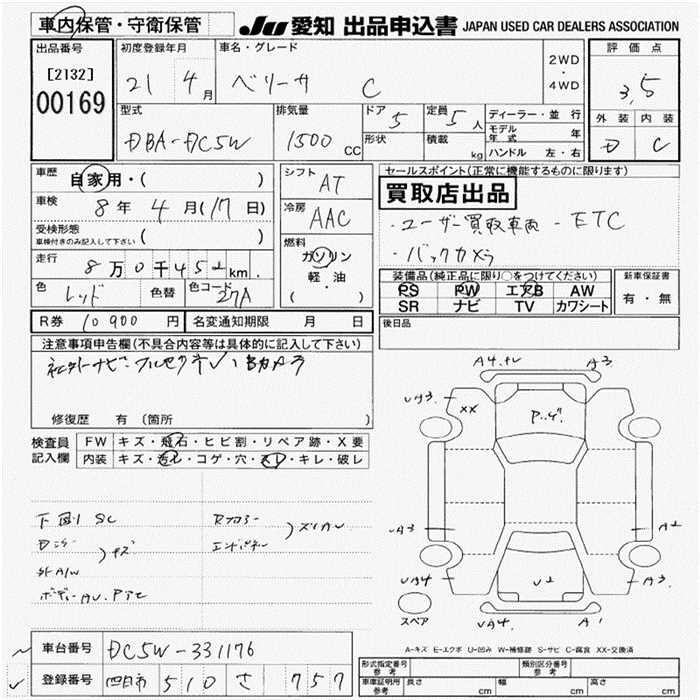 車内保管・守衛保管
JU 愛知 出品申込書 JAPAN USED CAR DEALERS ASSOCIATION
出品番号
[2132]
00169
初度登録年月
21 4月
車名・グレード
ベリーサ C
2WD
・
4WD
評価点
3.5
外装 内装
D C
型式
DBA-DC5W
排気量
1500 CC
ドア 5
形状
定員 5人
積載 kg
ディーラー・並行
モデル年式 年
ハンドル 左・右
車歴
自家用・( )
車検
8年 4月(17日)
受検形態
車検付きのみ記入して下さい ( )
走行
8万0千452km.
色 レッド 色替 色コード 27A
シフト AT
冷房 AAC
燃料
ガソリン
軽・油
( ・ )
セールスポイント(正常に機能するものに限ります)
買取店出品
・ユーザー買取車両 - ETC
・バックカメラ
装備品(純正品に限り○をつけてください)
PS PW エアB AW
SR ナビ TV カワシート
新車保証書
有・無
R券 10900円 名変通知期限 月 日
後日品
注意事項申告欄(不具合内容等は具体的に記入して下さい)
社外ナビ・フルセグTV
修復歴 有 〔箇所 〕
検査員
記入欄
FW キズ・飛石・ヒビ割・リペア跡・X要
内装 キズ・汚レ・コゲ・穴・スレ・キレ・破レ
下回りSC
外A/W
エンドパネル
A3
UA3.
XX
UA3
A2
UA4
A3.
U2
UA4.
A1
スペア
A-キズ E-エクボ U-凹み W-補修跡 S-サビ C-腐食 XX-交換済
車台番号 DC5W-331176
登録番号 四日市 510 さ 757
形式指定番号
参考
類別区分番号
参考
車車証明用
参考
長さ cm 幅 cm 高さ cm